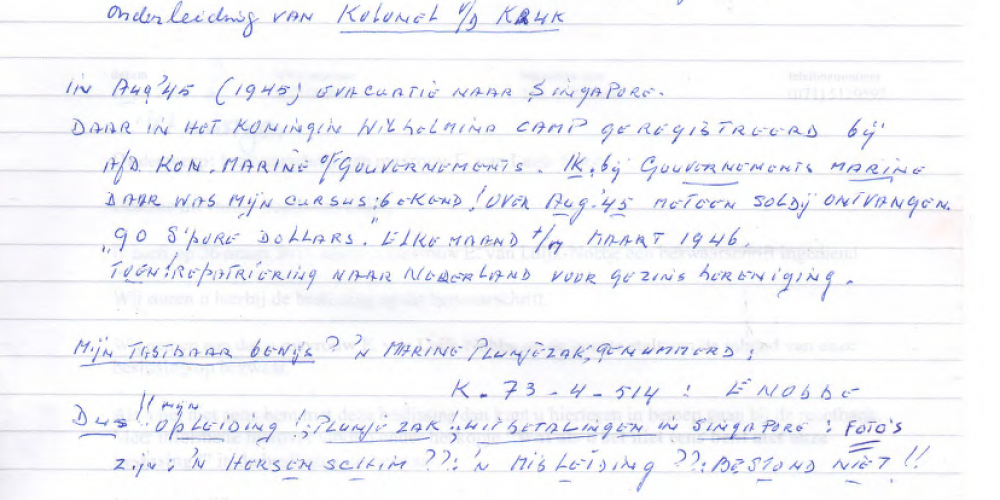 onderleiding VAN KOLONEL v/d KRUK
IN Aug '45 (1945) EVACUATIE NAAR SINGAPORE.
DAAR IN HET KONINGIN WILHELMINA CAMP GEREGISTREERD bij
A/D. KON. MARINE of GOUVERNEMENTS. IK, bij GOUVERNEMENTS MARINE
DAAR WAS MIJN CURSUS; BEKEND! OVER Aug. '45 METEEN SOLDIJ ONTVANGEN.
"90 S'PORE DOLLARS." ELKE MAAND t/m MAART 1946.
TOEN! REPATRIERING NAAR NEDERLAND VOOR GEZINS HERENIGING.
MIJN TASTBAAR BEWIJS? 'N MARINE PLUNJEZAK, GENUMMERD:
K. 73-4-514 : E NOBBE
DUS!! MIJN OPLEIDING!; PLUNJE ZAK: UITBETALINGEN IN SINGAPORE: FOTO'S
ZIJN: 'N HERSEN SCHIM??: 'N MISLEIDING??: BESTOND NIET!!